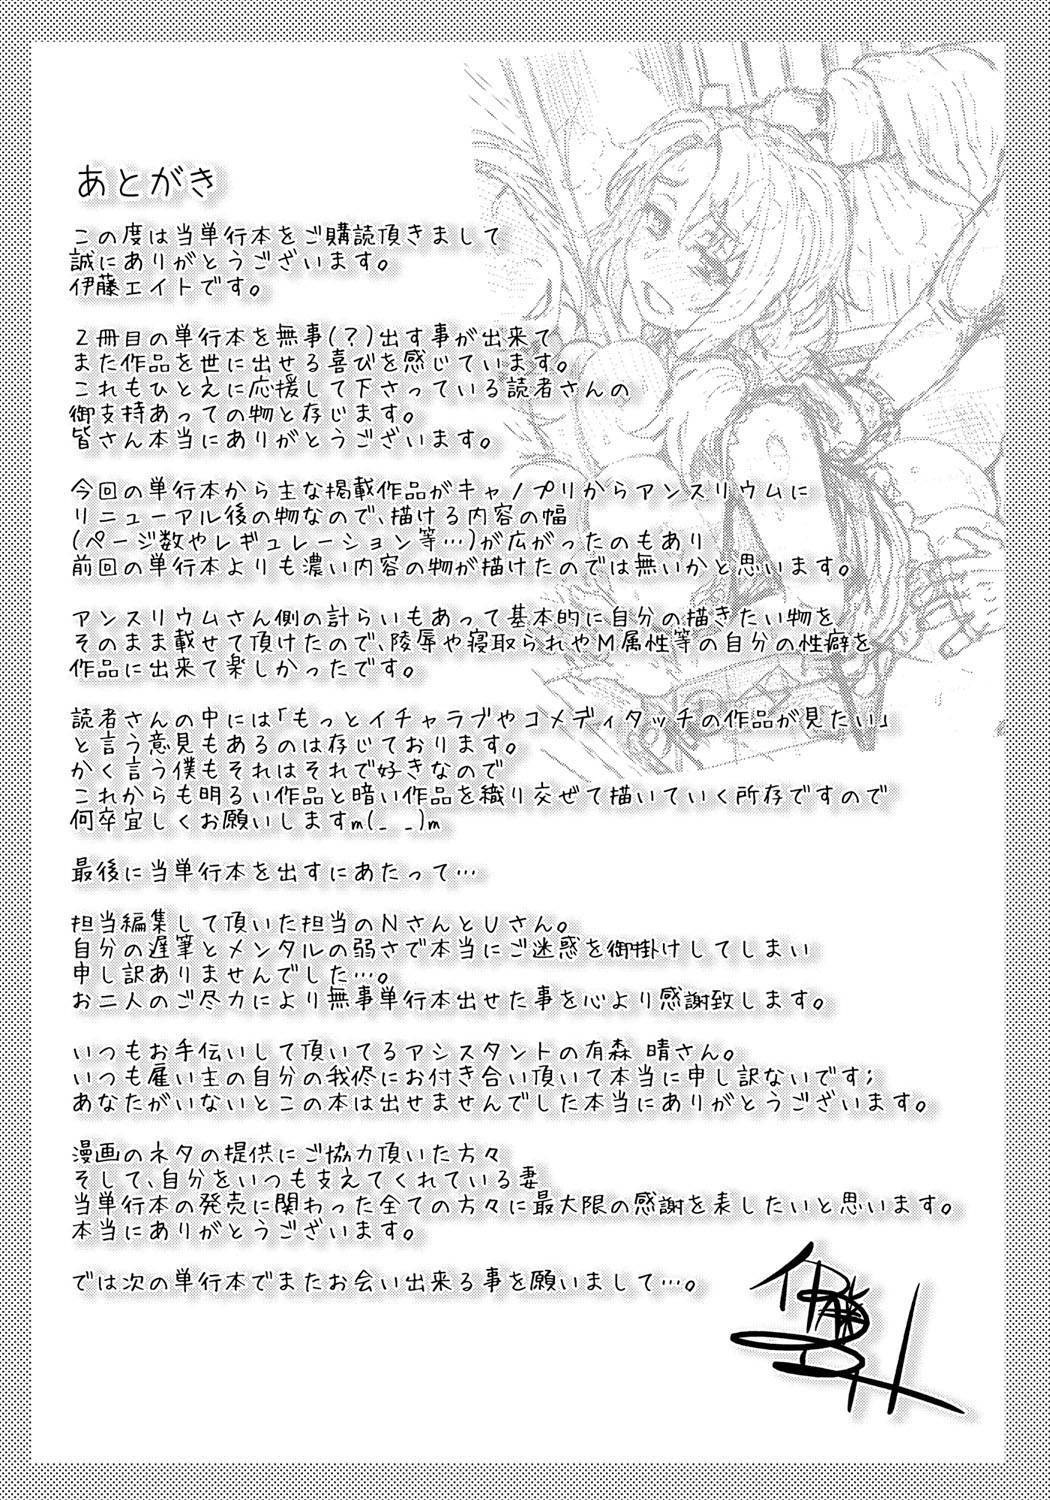 あとがき
この度は当単行本をご購読頂きまして
誠にありがとうございます。
伊藤エイトです。
2冊目の単行本を無事(?)出す事が出来て
また作品を世に出せる喜びを感じています。
これもひとえに応援して下さっている読者さんの
御支持あっての物と存じます。
皆さん本当にありがとうございます。
今回の単行本から主な掲載作品がキャノプリからアンスリウムに
リニューアル後の物なので、描ける内容の幅
(ページ数やレギュレーション等…)が広がったのもあり
前回の単行本よりも濃い内容の物が描けたのでは無いかと思います。
アンスリウムさん側の計らいもあって基本的に自分の描きたい物を
そのまま載せて頂けたので、陵辱や寝取られやM属性等の自分の性癖を
作品に出来て楽しかったです。
読者さんの中には「もっとイチャラブやコメディタッチの作品が見たい」
と言う意見もあるのは存じております。
かく言う僕もそれはそれで好きなので
これからも明るい作品と暗い作品を織り交ぜて描いていく所存ですので
何卒宜しくお願いしますm(_ _)m
最後に当単行本を出すにあたって…
担当編集して頂いた担当のNさんとUさん。
自分の遅筆とメンタルの弱さで本当にご迷惑を御掛けしてしまい
申し訳ありませんでした…。
お二人のご尽力により無事単行本出せた事を心より感謝致します。
いつもお手伝いして頂いてるアシスタントの有森 晴さん。
いつも雇い主の自分の我侭にお付き合い頂いて本当に申し訳ないです;
あなたがいないとこの本は出せませんでした本当にありがとうございます。
漫画のネタの提供にご協力頂いた方々
そして、自分をいつも支えてくれている妻
当単行本の発売に関わった全ての方々に最大限の感謝を表したいと思います。
本当にありがとうございます。
では次の単行本でまたお会い出来る事を願いまして…。